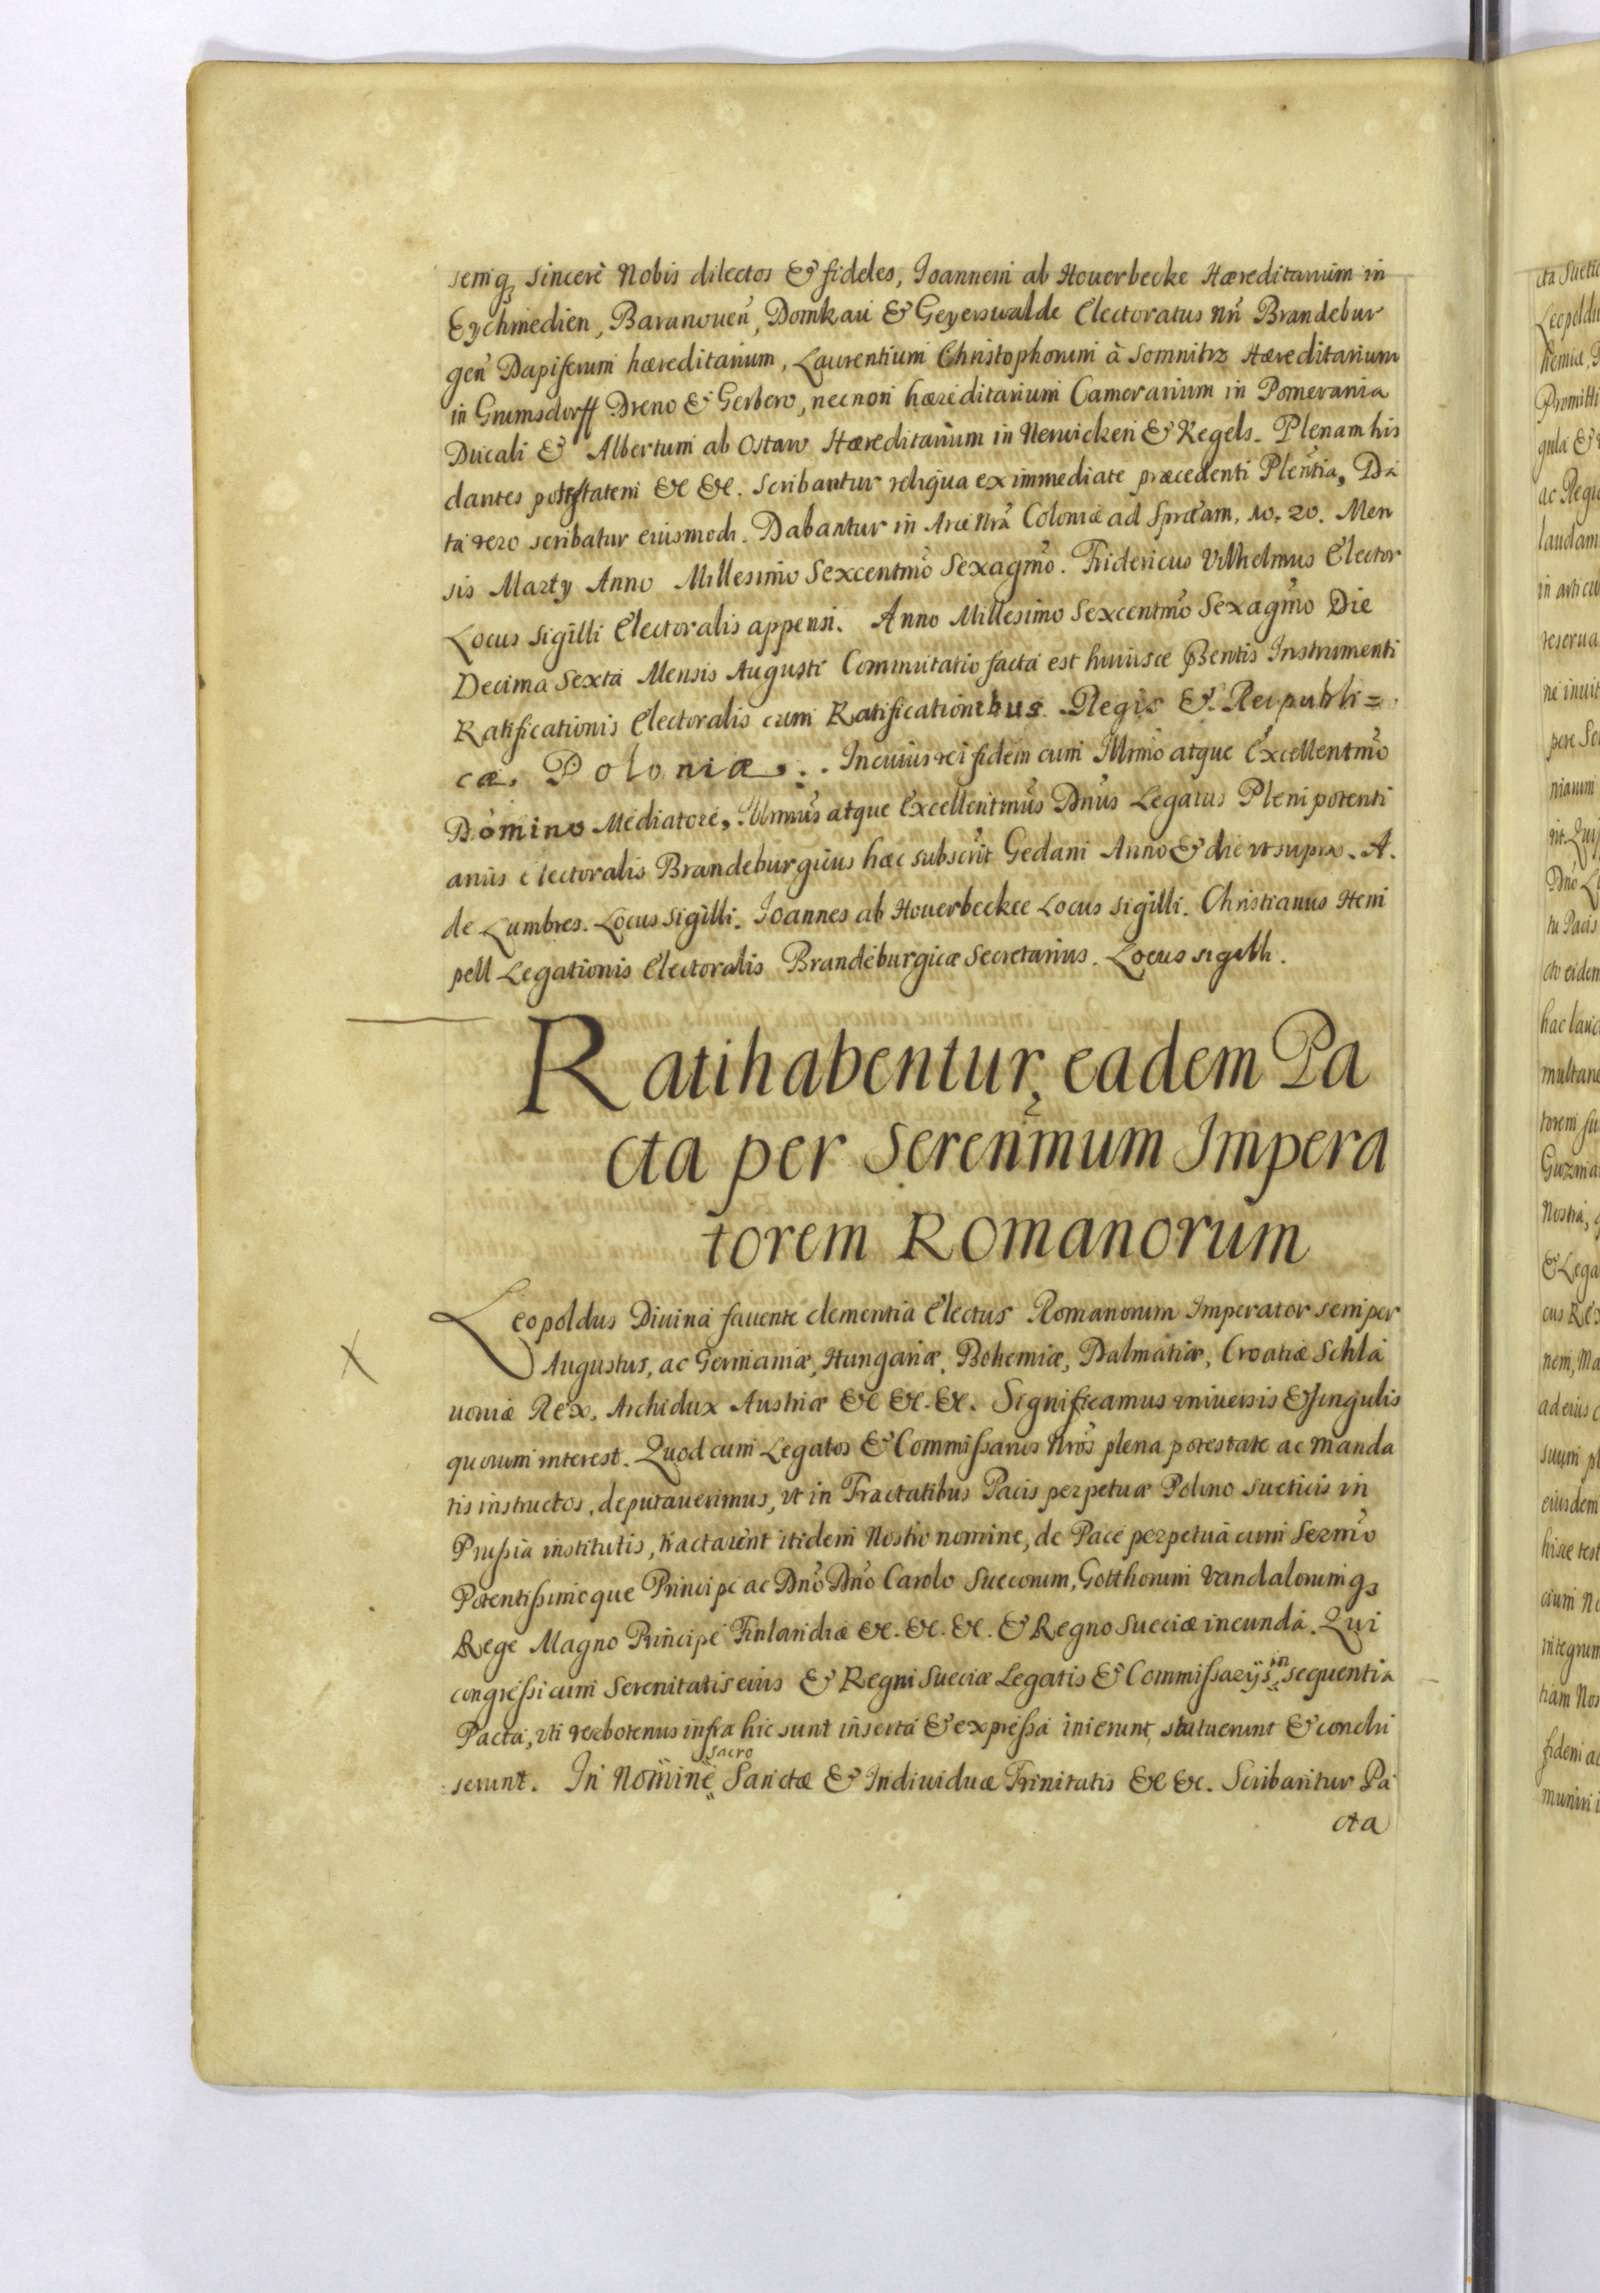 semq; sincerè Nobis dilectos & fideles, Joannem ab Houerbecke Hæreditarium in
Eychmedien, Baranouen, Domkau & Geyerswalde Electoratus Nri Brandebur
gen Dapiferum hæreditarium, Laurentium Christophorum à Somnitz Hæreditarium
in Grumsdorff Dreno & Gerbero, necnon hæreditarium Camerarium in Pomerania
Ducali & Albertum ab Ostaw Hæreditarium in Nerwicken & Regels. Plenam his
dantes potestatem &c &c. Scribantur reliqua ex immediate præcedenti Plentia, Da
ta vero scribatur eiusmodi. Dabantur in Arce Nra Coloniæ ad Spræam, 10. 20. Men
sis Marty Anno Millesimo Sexcentmo Sexagmo. Fridericus Vilhelmus Elector
Locus Sigilli Electoralis appensi. Anno Millesimo Sexcentmo Sexagmo Die
Decima Sexta Mensis Augusti Commutatio facta est huiusce Pentis Instrumenti
Ratificationis Electoralis cum Ratificationibus Regis & Reipubli=
cæ, Poloniæ. Incuius rei fidem cum Illmo atque Excellentmo
Domino Mediatore, Illmus atque Excellentmus Dnus Legatus Plenipotenti
arius electoralis Brandeburgicus hæc subscrit Gedani Anno & die vt supra. A.
de Lumbres. Locus sigilli. Joannes ab Houerbeckee Locus sigilli. Christianus Hem
pell Legationis Electoralis Brandeburgicæ Secretarius. Locus sigilli.
Ratihabentur, eadem Pa
cta per Serenmum Impera
torem Romanorum
Leopoldus Diuina fauente clementia Electus Romanorum Imperator semper
Augustus, ac Germaniæ, Hungariæ, Bohemiæ, Dalmatiæ, Croatiæ Schla
uoniæ Rex, Archidux Austriæ &c &c. &c. Significamus vniuersis & singulis
quorum interest. Quod cum Legatos & Commissarios Nros plena potestate ac manda
tis instructos, deputauerimus, vt in Tractatibus Pacis perpetuæ Polono sueticis in
Prussia institutis, tractarent itidem Nostro nomine, de Pace perpetua cum Sermo
Potentissimoque Principe ac Dno Dno Carolo Suecorum, Gotthorum Vandalorumq;
Rege Magno Principe Finlandiæ &c. &c. &c. & Regno Sueciæ ineunda. Qui
congressi cum Serenitatis eius & Regni Sueciæ Legatis & Commissarijs in sequentia
Pacta, vti verbotenus infra hic sunt inserta & expressa inierunt, statuerunt & conclu
serunt. In Nomine sacro Sanctæ & Indiuiduæ Trinitatis &c &c. Scribantur Pa
cta